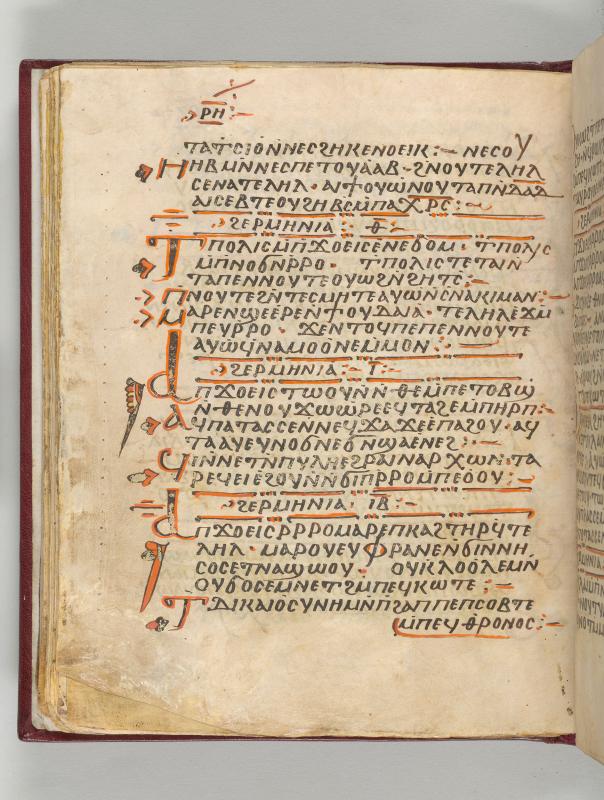 ⲣⲏ
ⲧⲁⲧⲥⲓⲟⲛⲛⲉⲥϩⲏⲕⲉⲛⲟⲉⲓⲕ :— ⲛⲉⲥⲟⲩ
ⲏⲏⲃⲙⲛⲛⲉⲥⲡⲉⲧⲟⲩⲁⲁⲃ · ϩⲛⲟⲩⲧⲉⲗⲏⲗ
ⲥⲉⲛⲁⲧⲉⲗⲏⲗ · ⲁⲓϯⲟⲩⲱⲛⲟⲩⲧⲁⲡⲛⲇⲁⲇ
ⲁⲓⲥⲉⲃⲧⲉⲟⲩϩⲏⲃⲥⲙⲡⲁⲭⲣⲥ :—
ϩⲉⲣⲙⲏⲛⲓⲁ : ⲑ :—
ⲧⲡⲟⲗⲓⲥⲙⲡϫⲟⲉⲓⲥⲉⲛⲉϭⲟⲙ · ⲧⲡⲟⲗⲓⲥ
ⲙⲡⲛⲟϭⲛⲣⲣⲟ · ⲧⲡⲟⲗⲓⲥⲧⲉⲧⲁⲓⲛ
ⲧⲁⲡⲉⲛⲛⲟⲩⲧⲉⲟⲩⲱϩⲛϩⲏⲧⲥ :—
ⲡⲛⲟⲩⲧⲉϩⲛⲧⲉⲥⲙⲏⲧⲉⲁⲩⲱⲛⲥⲛⲁⲕⲓⲙⲁⲛ :—
ⲙⲁⲣⲉⲛϣⲉⲉⲣⲉⲛϯⲟⲩⲇⲁⲓⲁ · ⲧⲉⲗⲏⲗⲉϫⲙ
ⲡⲉⲩⲣⲣⲟ · ϫⲉⲛⲧⲟϥⲡⲉⲡⲉⲛⲛⲟⲩⲧⲉ
ⲁⲩⲱϥⲛⲁⲙⲟⲟⲛⲉⲙⲙⲟⲛ :—
ϩⲉⲣⲙⲏⲛⲓⲁ :— ⲓ :—
ⲁⲡϫⲟⲉⲓⲥⲧⲱⲟⲩⲛⲛ · ⲑⲉⲙⲡⲉⲧⲟⲃϣ
ⲛ · ⲑⲉⲛⲟⲩϫⲱⲱⲣⲉⲉϥⲧⲁϩⲉⲙⲡⲏⲣⲡ :—
ⲁϥⲡⲁⲧⲁⲥⲥⲉⲛⲛⲉϥϫⲁϫⲉⲉⲡⲁϩⲟⲩ · ⲁϥ
ⲧⲁⲁⲩⲉⲩⲛⲟϭⲛⲉϭⲛϣⲁⲉⲛⲉϩ :—
ϥⲓⲛⲛⲉⲧⲙⲡⲩⲗⲏⲉϩⲣⲁⲓⲛⲁⲣⲭⲱⲛ · ⲧⲁ
ⲣⲉϥⲉⲓⲉϩⲟⲩⲛⲛϭⲓⲡⲣⲣⲟⲙⲡⲉⲟⲟⲩ :—
ϩⲉⲣⲙⲏⲛⲓⲁ · ⲓⲃ :—
ⲁⲡϫⲟⲉⲓⲥⲣⲣⲣⲟⲙⲁⲣⲉⲡⲕⲁϩⲧⲏⲣϥⲧⲉ
ⲗⲏⲗ · ⲙⲁⲣⲟⲩⲉⲩⲫⲣⲁⲛⲉⲛϭⲓⲛⲛⲏ
ⲥⲟⲥⲉⲧⲛⲁϣⲱⲟⲩ · ⲟⲩⲕⲗⲟⲟⲗⲉⲙⲛ
ⲟⲩϭⲟⲥⲉⲙⲛⲉⲧϩⲙⲡⲉϥⲕⲱⲧⲉ :—
ⲧⲇⲓⲕⲁⲓⲟⲥⲩⲛⲏⲙⲛⲡϩⲁⲡⲡⲉⲡⲥⲟⲃⲧⲉ
ⲙⲡⲉϥⲑⲣⲟⲛⲟⲥ :—